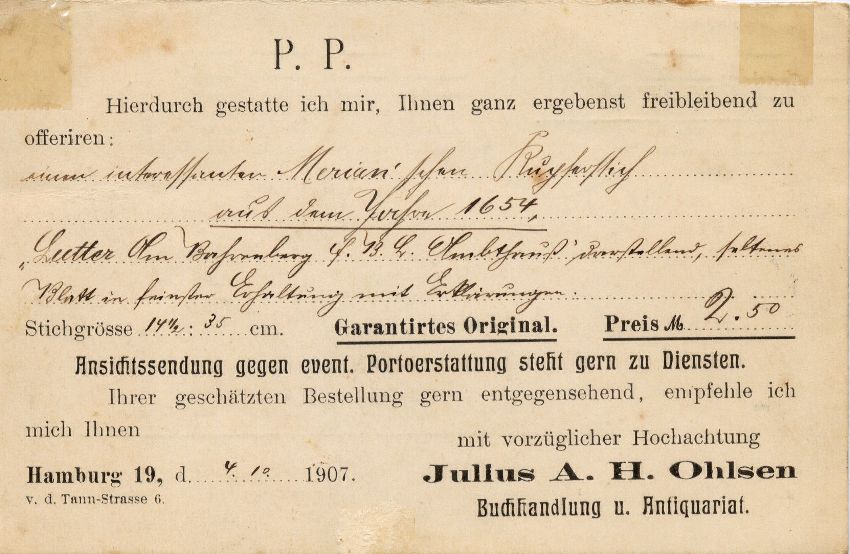 P. P.
Hierdurch gestatte ich mir, Ihnen ganz ergebenst freibleibend zu
offeriren:
einen interessanten Merian'schen Kupferstich
aus dem Jahre 1654,
„Lutter Am Bahrenberg f. B. L. Ambthauß" darstellend, seltenes
Blatt in feinster Erhaltung mit Erklärungen.
Stichgrösse 14½ : 35 cm. Garantirtes Original. Preis M 2.50
Ansichtssendung gegen event. Portoerstattung steht gern zu Diensten.
Ihrer geschätzten Bestellung gern entgegensehend, empfehle ich
mich Ihnen
mit vorzüglicher Hochachtung
Hamburg 19, d. 4. 10. 1907. Julius A. H. Ohlsen
v. d. Tann-Strasse 6. Buchhandlung u. Antiquariat.